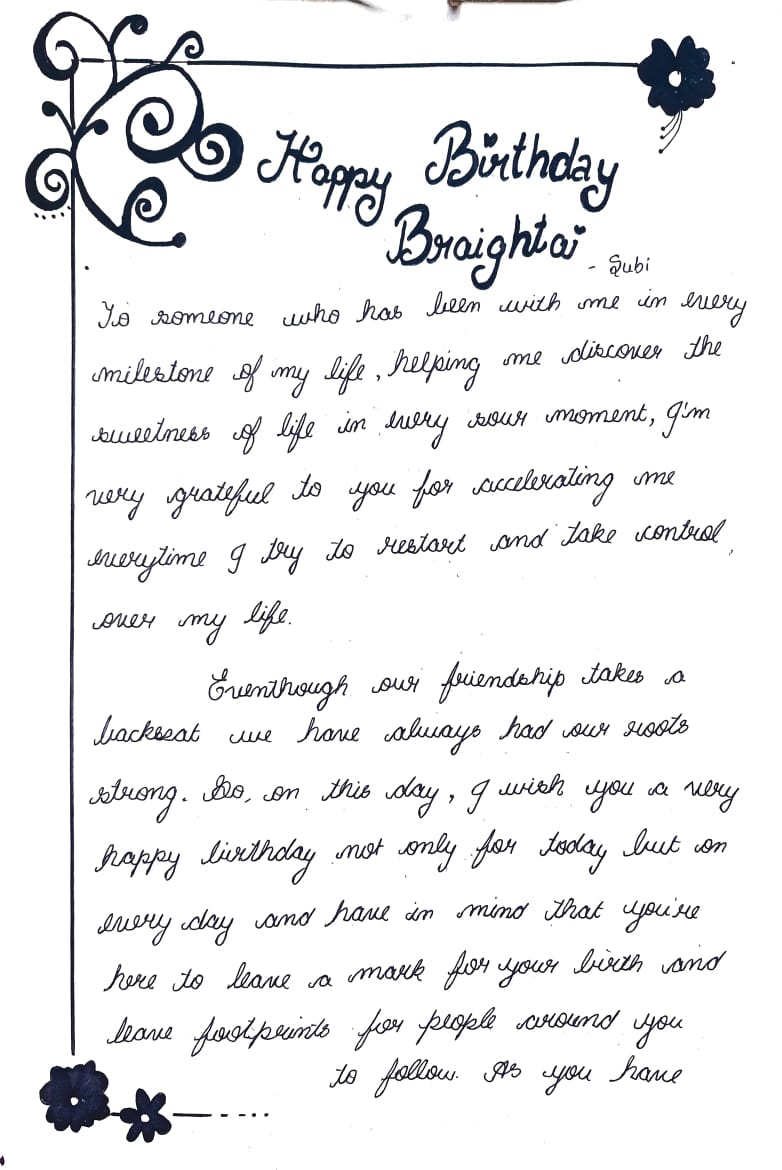 Happy Birthday
Braightai
- Subi
To someone who has been with me in every
milestone of my life, helping me discover the
sweetness of life in every sour moment, I'm
very grateful to you for accelerating me
everytime I try to restart and take control
over my life.
Eventhough our friendship takes a
backseat we have always had our roots
strong. So, on this day, I wish you a very
happy birthday not only for today but on
every day and have in mind that you're
here to leave a mark for your birth and
leave footprints for people around you
to follow. As you have